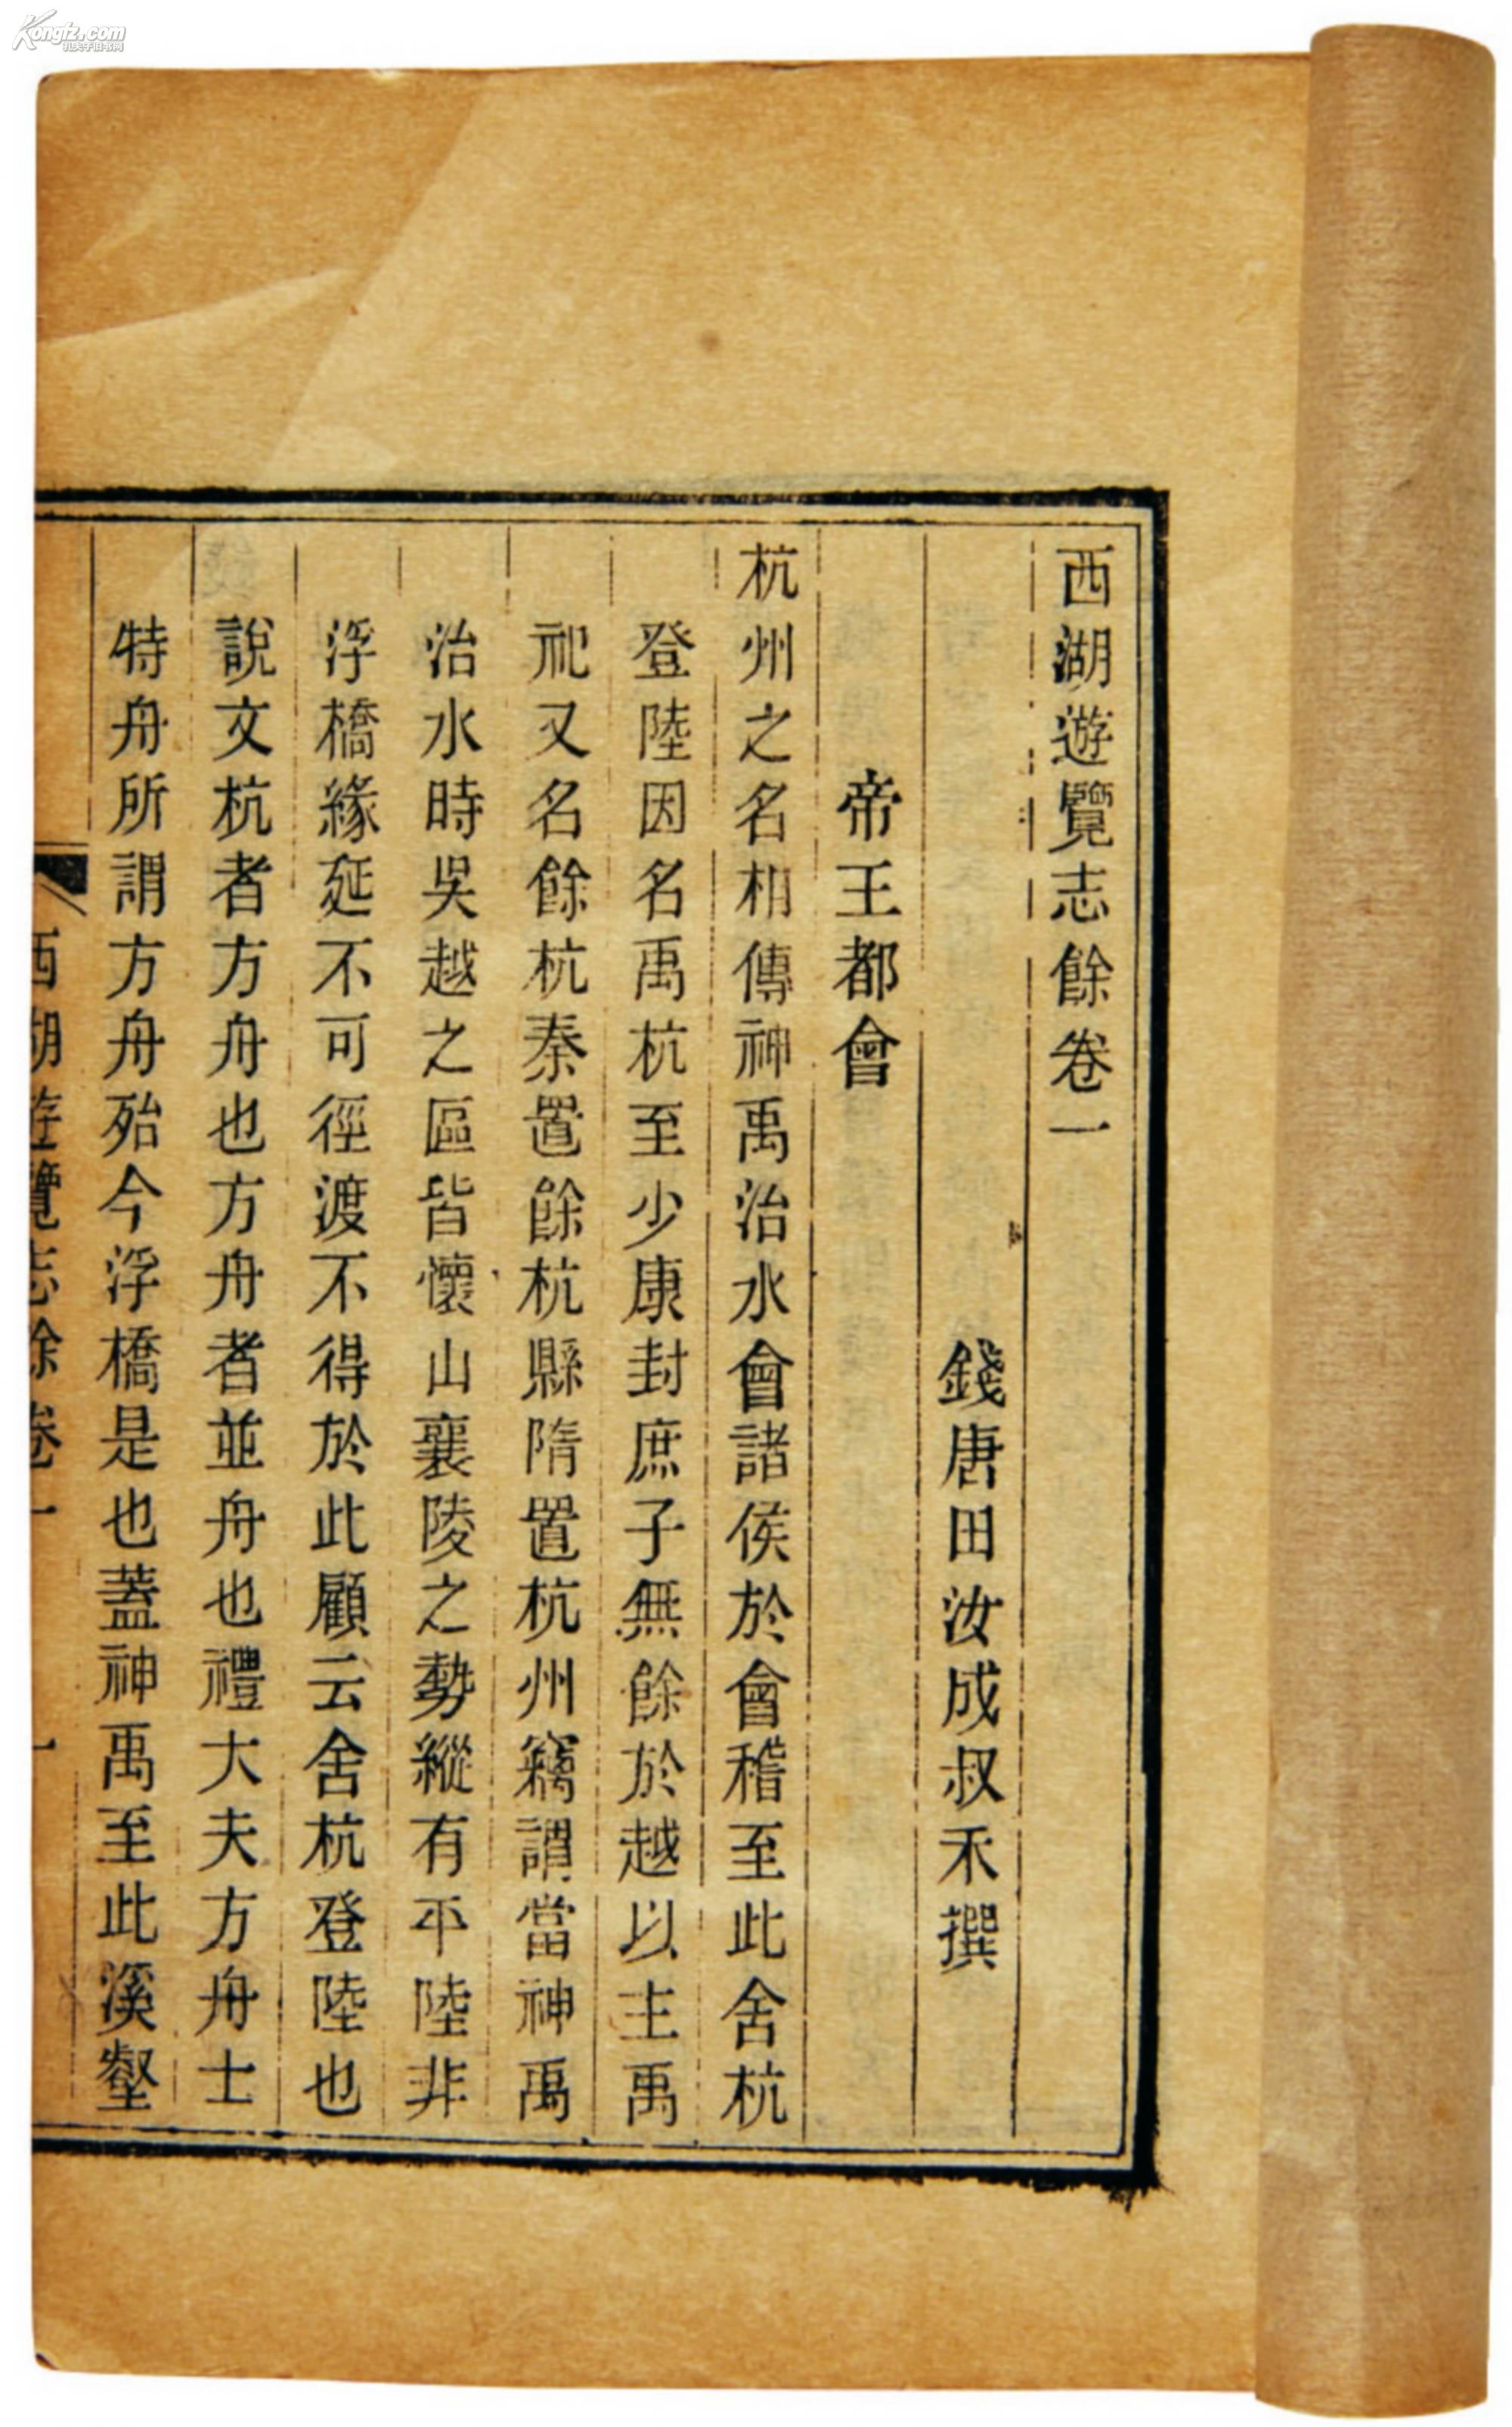 西湖遊覽志餘卷一
錢唐田汝成叔禾撰
帝王都會
杭州之名相傳神禹治水會諸侯於會稽至此舍杭
登陸因名禹杭至少康封庶子無餘於越以主禹
祀又名餘杭秦置餘杭縣隋置杭州竊謂當神禹
治水時吳越之區皆懷山襄陵之勢縱有平陸非
浮橋緣延不可徑渡不得於此顧云舍杭登陸也
說文杭者方舟也方舟者並舟也禮大夫方舟士
特舟所謂方舟殆今浮橋是也蓋神禹至此溪壑
西湖遊覽志餘卷一 一
Kongfz.com
孔夫子旧书网